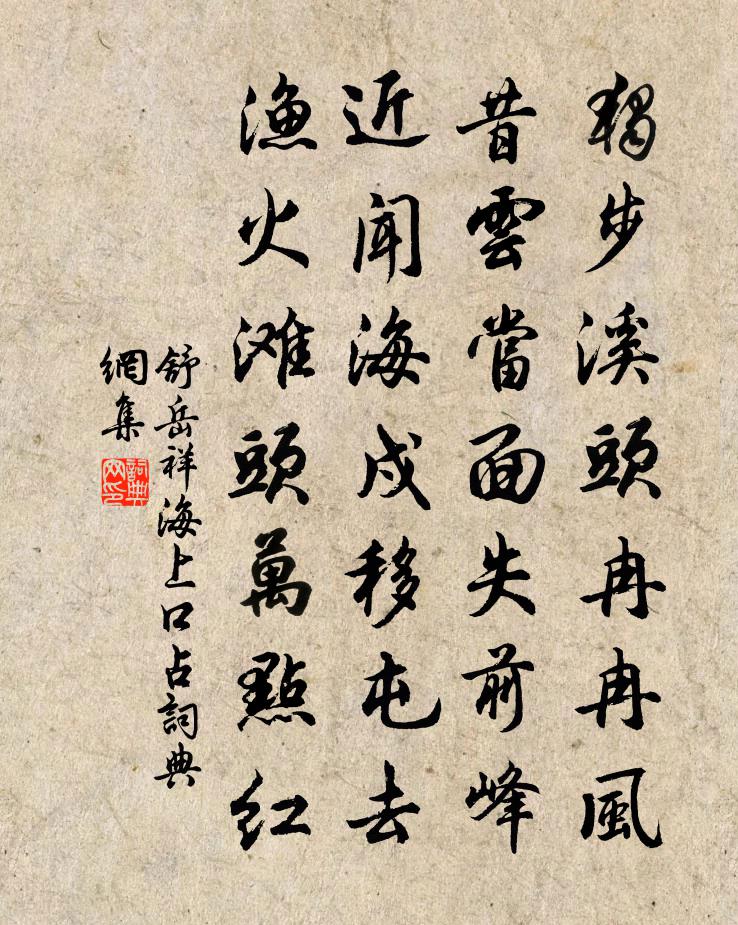 獨步溪頭冉冉風
昔雲當面失前峰
近聞海戍移屯去
漁火滩頭萬點紅
舒岳祥海上口占詞典
網集
詞典
网印